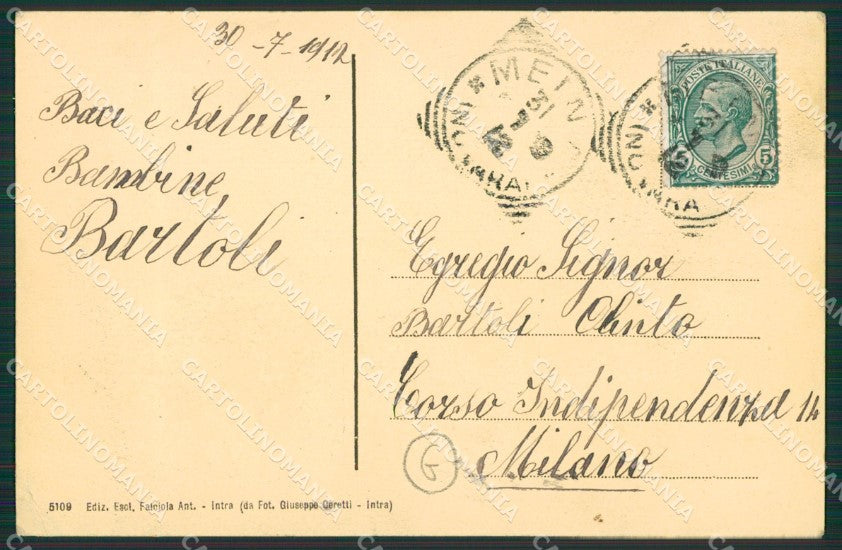 30-7-1912
Baci e Saluti
Bambine
Bartoli
MEINA
(NOVARA)
31
POSTE ITALIANE
5 CENTESIMI 5
Egregio Signor
Bartoli Olinto
Corso Indipendenza 14
Milano
G
5109 Ediz. Escl. Fatciola Ant. - Intra (da Fot. Giuseppe Ceretti - Intra)
CARTOLINOMANIA